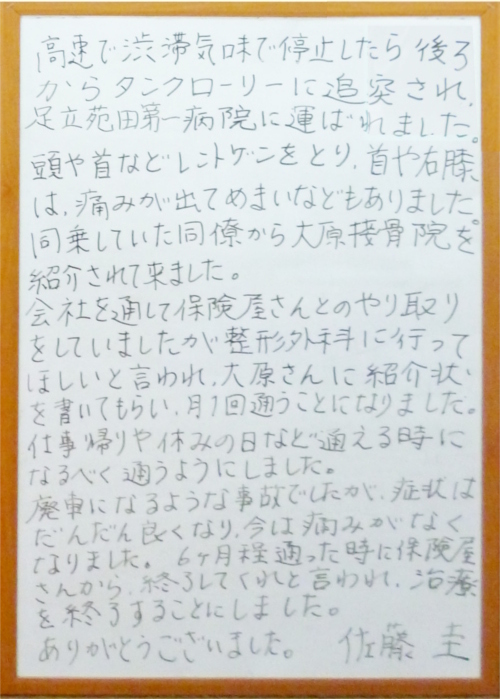 高速で渋滞気味で停止したら後ろ
からタンクローリーに追突され、
足立苑田第一病院に運ばれました。
頭や首などレントゲンをとり、首や右膝
は、痛みが出てめまいなどもありました。
同乗していた同僚から大原接骨院を
紹介されて来ました。
会社を通して保険屋さんとのやり取り
をしていましたが整形外科に行って
ほしいと言われ、大原さんに紹介状
を書いてもらい、月1回通うことになりました。
仕事帰りや休みの日など通える時に
なるべく通うようにしました。
廃車になるような事故でしたが、症状は
だんだん良くなり、今は痛みがなく
なりました。 6ヶ月程通った時に保険屋
さんから、終了してくれと言われ、治療
を終了することにしました。
ありがとうございました。 佐藤 圭